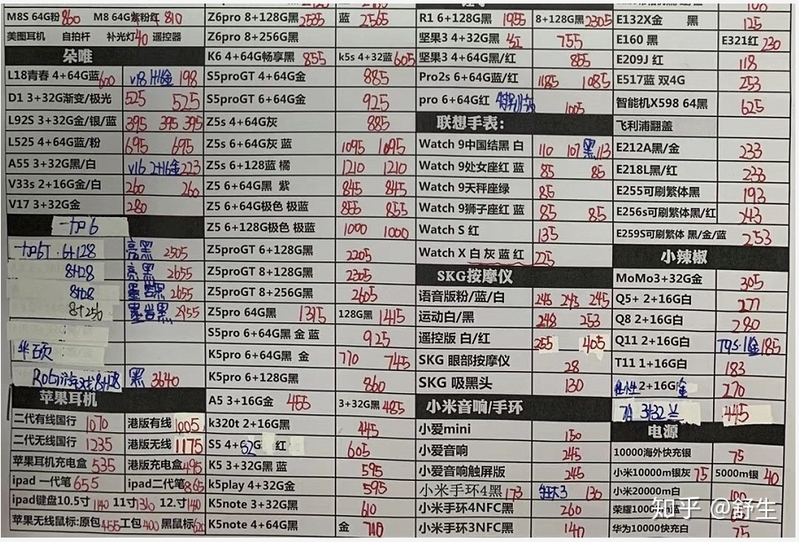 M8S 64G粉 860 M8 64G紫粉红 810
美图耳机 自拍杆 补光灯 40 遥控器
朵唯
L18青春 4+64G蓝 600 V18 H+16金 198
D1 3+32G渐变/极光 525 525
L92S 3+32G金/银/蓝 395 395 395
L525 4+64G蓝/粉 695 695
A55 3+32G黑/白 V16 2+16金 223
V33s 2+16G金/白 260 260
V17 3+32G金 280
一加6
一加6T. 6+128 亮黑 2505
8+128 亮黑 2655
8+128 墨岩黑 2655
8+256 墨岩黑 2955
华硕
Rog游戏 8+128 黑 3640
苹果耳机
二代有线国行 1070 港版有线 1005
二代无线国行 1235 港版无线 1175
苹果耳机充电盒 535 港版充电盒 495
ipad 一代笔 655 ipad二代笔 865
ipad键盘10.5寸 1140 11寸 1310 12.寸 140
苹果无线鼠标:原包 455 工包 400 黑鼠标 620
Z6pro 8+128G黑 2535 蓝 2565
Z6pro 8+256G黑
K6 4+64G畅享黑 855 k5s 4+32蓝 605
S5proGT 4+64G金 885
S5proGT 6+64G金 925
Z5s 4+64G灰 885
Z5s 6+64G灰 蓝 1095 1095
Z5s 6+128蓝 橘 1210 1210
Z5 6+64G黑 紫 845 845
Z5 6+64G极色 极蓝 855 855
Z5 6+128G极色 极蓝 1000 1000
Z5proGT 6+128G黑 2205
Z5proGT 8+128G黑 2305
Z5proGT 8+256G黑 2605
Z5pro 64G黑 1315 128G黑 1415
S5pro 6+64G黑 金 蓝 925
K5pro 6+64G黑 金 770 745
K5pro 6+128G黑 860
A5 3+16G金 455 3+32G黑 485
k320t 2+16G黑 445
S5 4+ 红 605
K5 3+32G黑 蓝 595
k5play 4+32G金 595
K5note 3+32G黑 610
K5note 4+64G黑 金 740
R1 6+128G黑 1955 8+128G黑 2305
坚果3 4+32G黑 红 755
坚果3 4+64G黑/红 855
Pro2s 6+64G蓝/红 1185 1085
pro 6+64G红 1005
联想手表:
Watch 9中国结黑 白 110 107 黑 113
Watch 9处女座红 蓝 85 85
Watch 9天秤座绿 85
Watch 9狮子座红 蓝 85 85
Watch S 红 135
Watch X 白 灰 蓝 红 225
SKG按摩仪
语音版粉/蓝/白 245 245 245
运动白/黑 248 253
遥控版 白/红 255 405
SKG 眼部按摩仪 28
SKG 吸黑头 130
小米音响/手环
小爱mini 130
小爱音响 245
小爱音响触屏版 245
小米手环4黑 173 手环3 130
小米手环4NFC黑 260
小米手环3NFC黑 140
E132X金 黑 125
E160 黑 E321红 230
E209J 红 118
E517蓝 双4G 253
智能机X598 64黑 625
飞利浦翻盖
E212A黑/金 233
E218L黑/红 233
E255可刷繁体黑 193
E256s可刷繁体黑/红 243
E259S可刷繁体 黑/金/蓝 253
小辣椒
MoMo3+32G金 305
Q5+ 2+16G白 277
Q8 2+16G白 280
Q11 2+16G白 185
T11 1+16G白 183
2+16G白 金 270
7A 3+32 兰 445
电源
10000海外快充银 75
小米10000m银灰 75 5000m银 40
小米20000m白 100
荣耀1000
华为10000快充白 75
知乎 @舒生